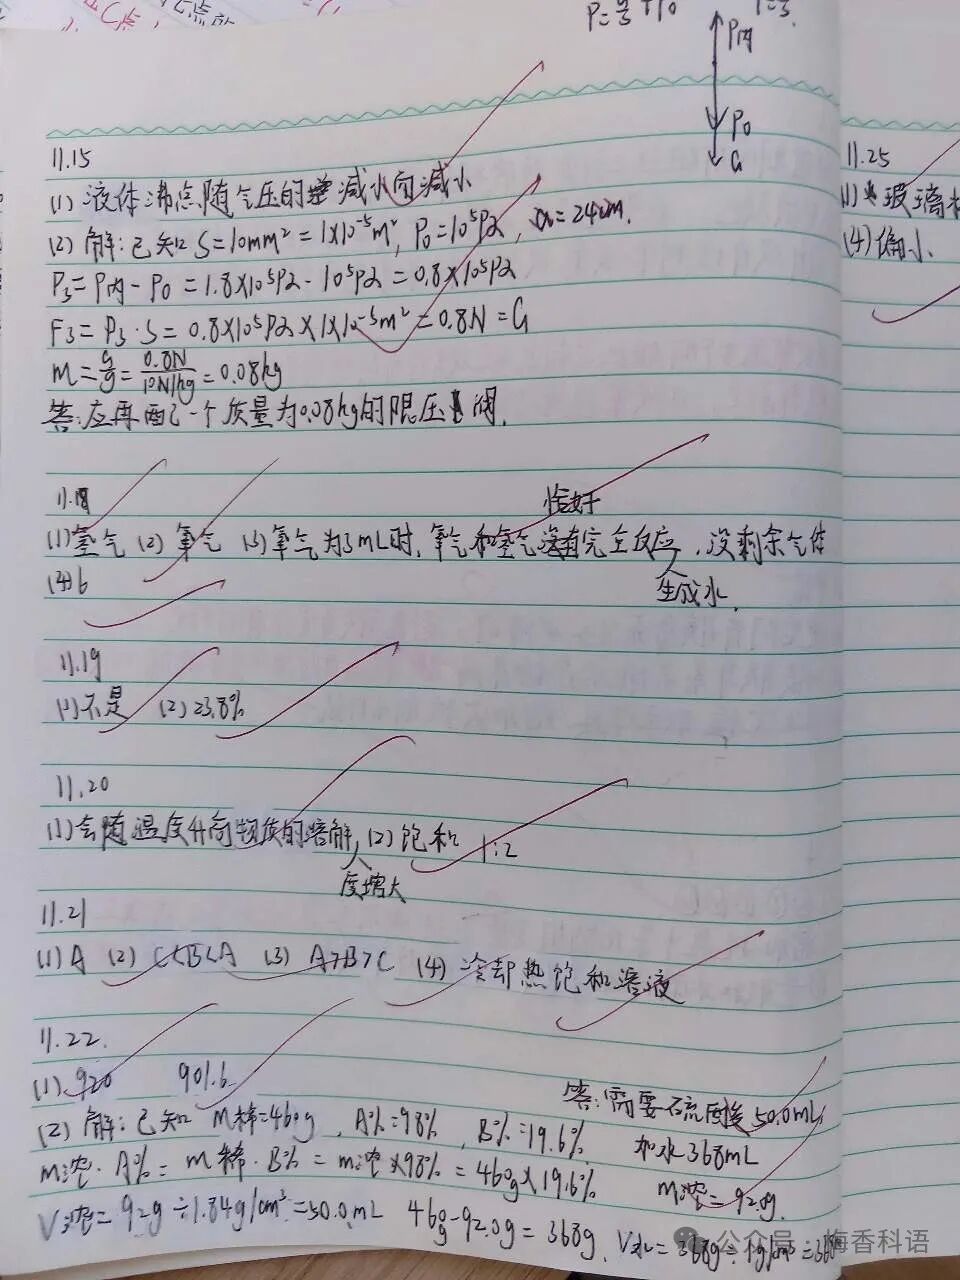 P内
P0
G
11.15
(1) 液体沸点随气压的减小而减小
(2) 解:已知 S=10mm²=1×10⁻⁵m², P0=10⁵Pa, =24cm.
P3=P内-P0=1.8×10⁵Pa-10⁵Pa=0.8×10⁵Pa
F3=P3·S=0.8×10⁵Pa×1×10⁻⁵m²=0.8N=G
m=G/g=0.8N/10N/kg=0.08kg
答:应再配一个质量为0.08kg的限压阀.
恰好
(1)氢气 (2) 氧气 (3)氧气为3mL时,氧气和氢气完全反应,没剩余气体
生成水.
(4) b
11.19
(1)不是 (2) 23.8%
11.20
(1)会随温度升高物质的溶解, (2) 饱和 1:2
度增大
11.21
(1) A (2) C<B<A (3) A>B>C (4) 冷却热饱和溶液
11.22.
(1). 920 901.6
答:需要硫酸50.0mL,
(2) 解:已知 m稀=460g, A%=98%, B%=19.6% 加水368mL
m浓·A%=m稀·B%=m浓×98%=460g×19.6% m浓=92.0g.
V浓=92g÷1.84g/cm³=50.0mL 460g-92.0g=368g. V水=368g÷1g/cm³=368
11.25
(1) 玻璃
(4)偏小.
公众号·梅香科语